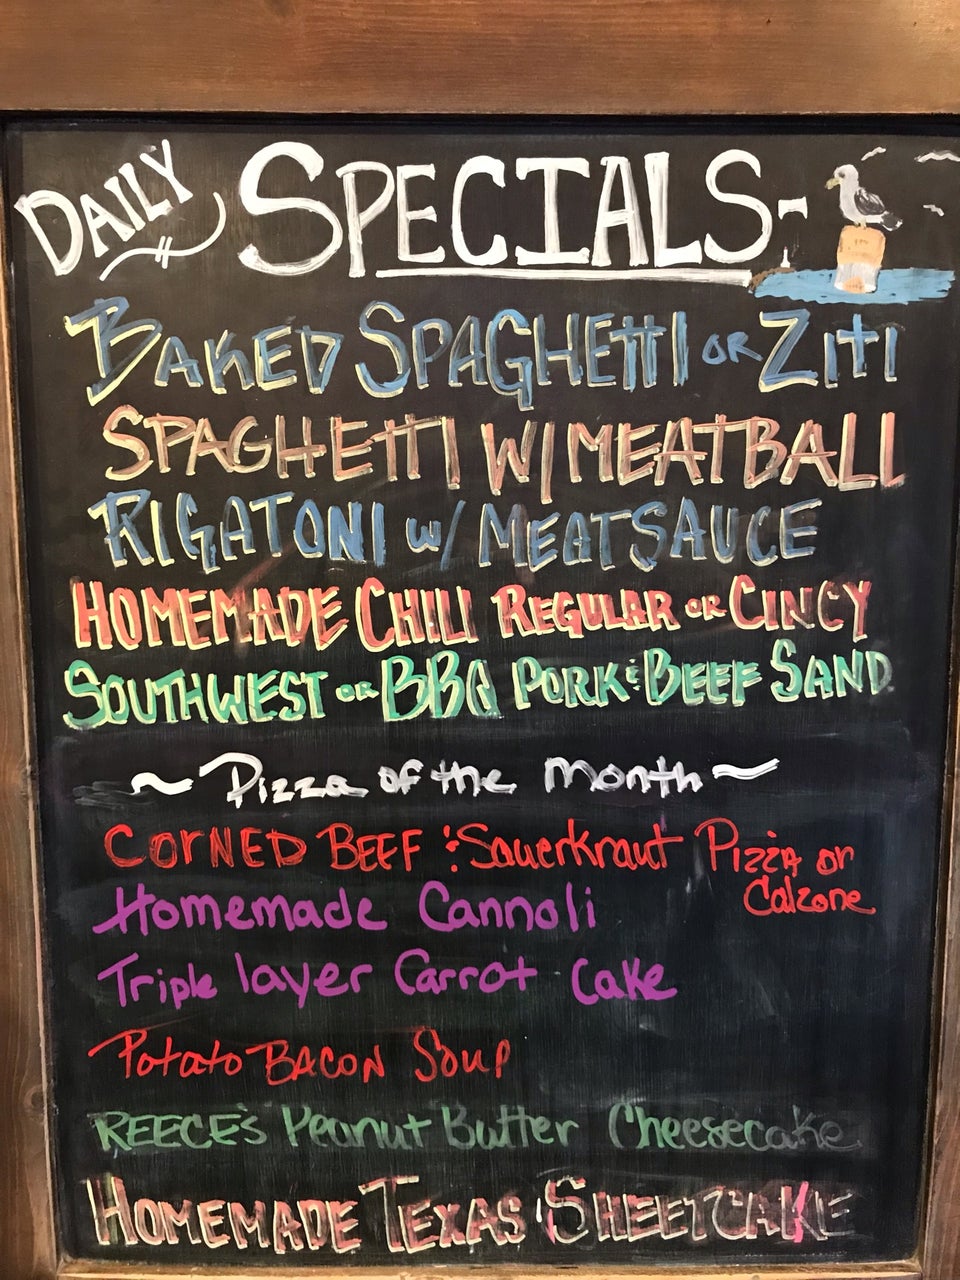 DAILY SPECIALS-
BAKED SPAGHETTI OR ZITI
SPAGHETTI W/ MEATBALL
RIGATONI W/ MEATSAUCE
HOMEMADE CHILI REGULAR OR CINCY
SOUTHWEST OR BBQ PORK & BEEF SAND
~ Pizza of the Month ~
CORNED BEEF & Sauerkraut PIZZA or
Calzone
Homemade Cannoli
Triple layer Carrot Cake
Potato BACON SOUP
REECE'S Peanut Butter Cheesecake
HOMEMADE TEXAS SHEETCAKE